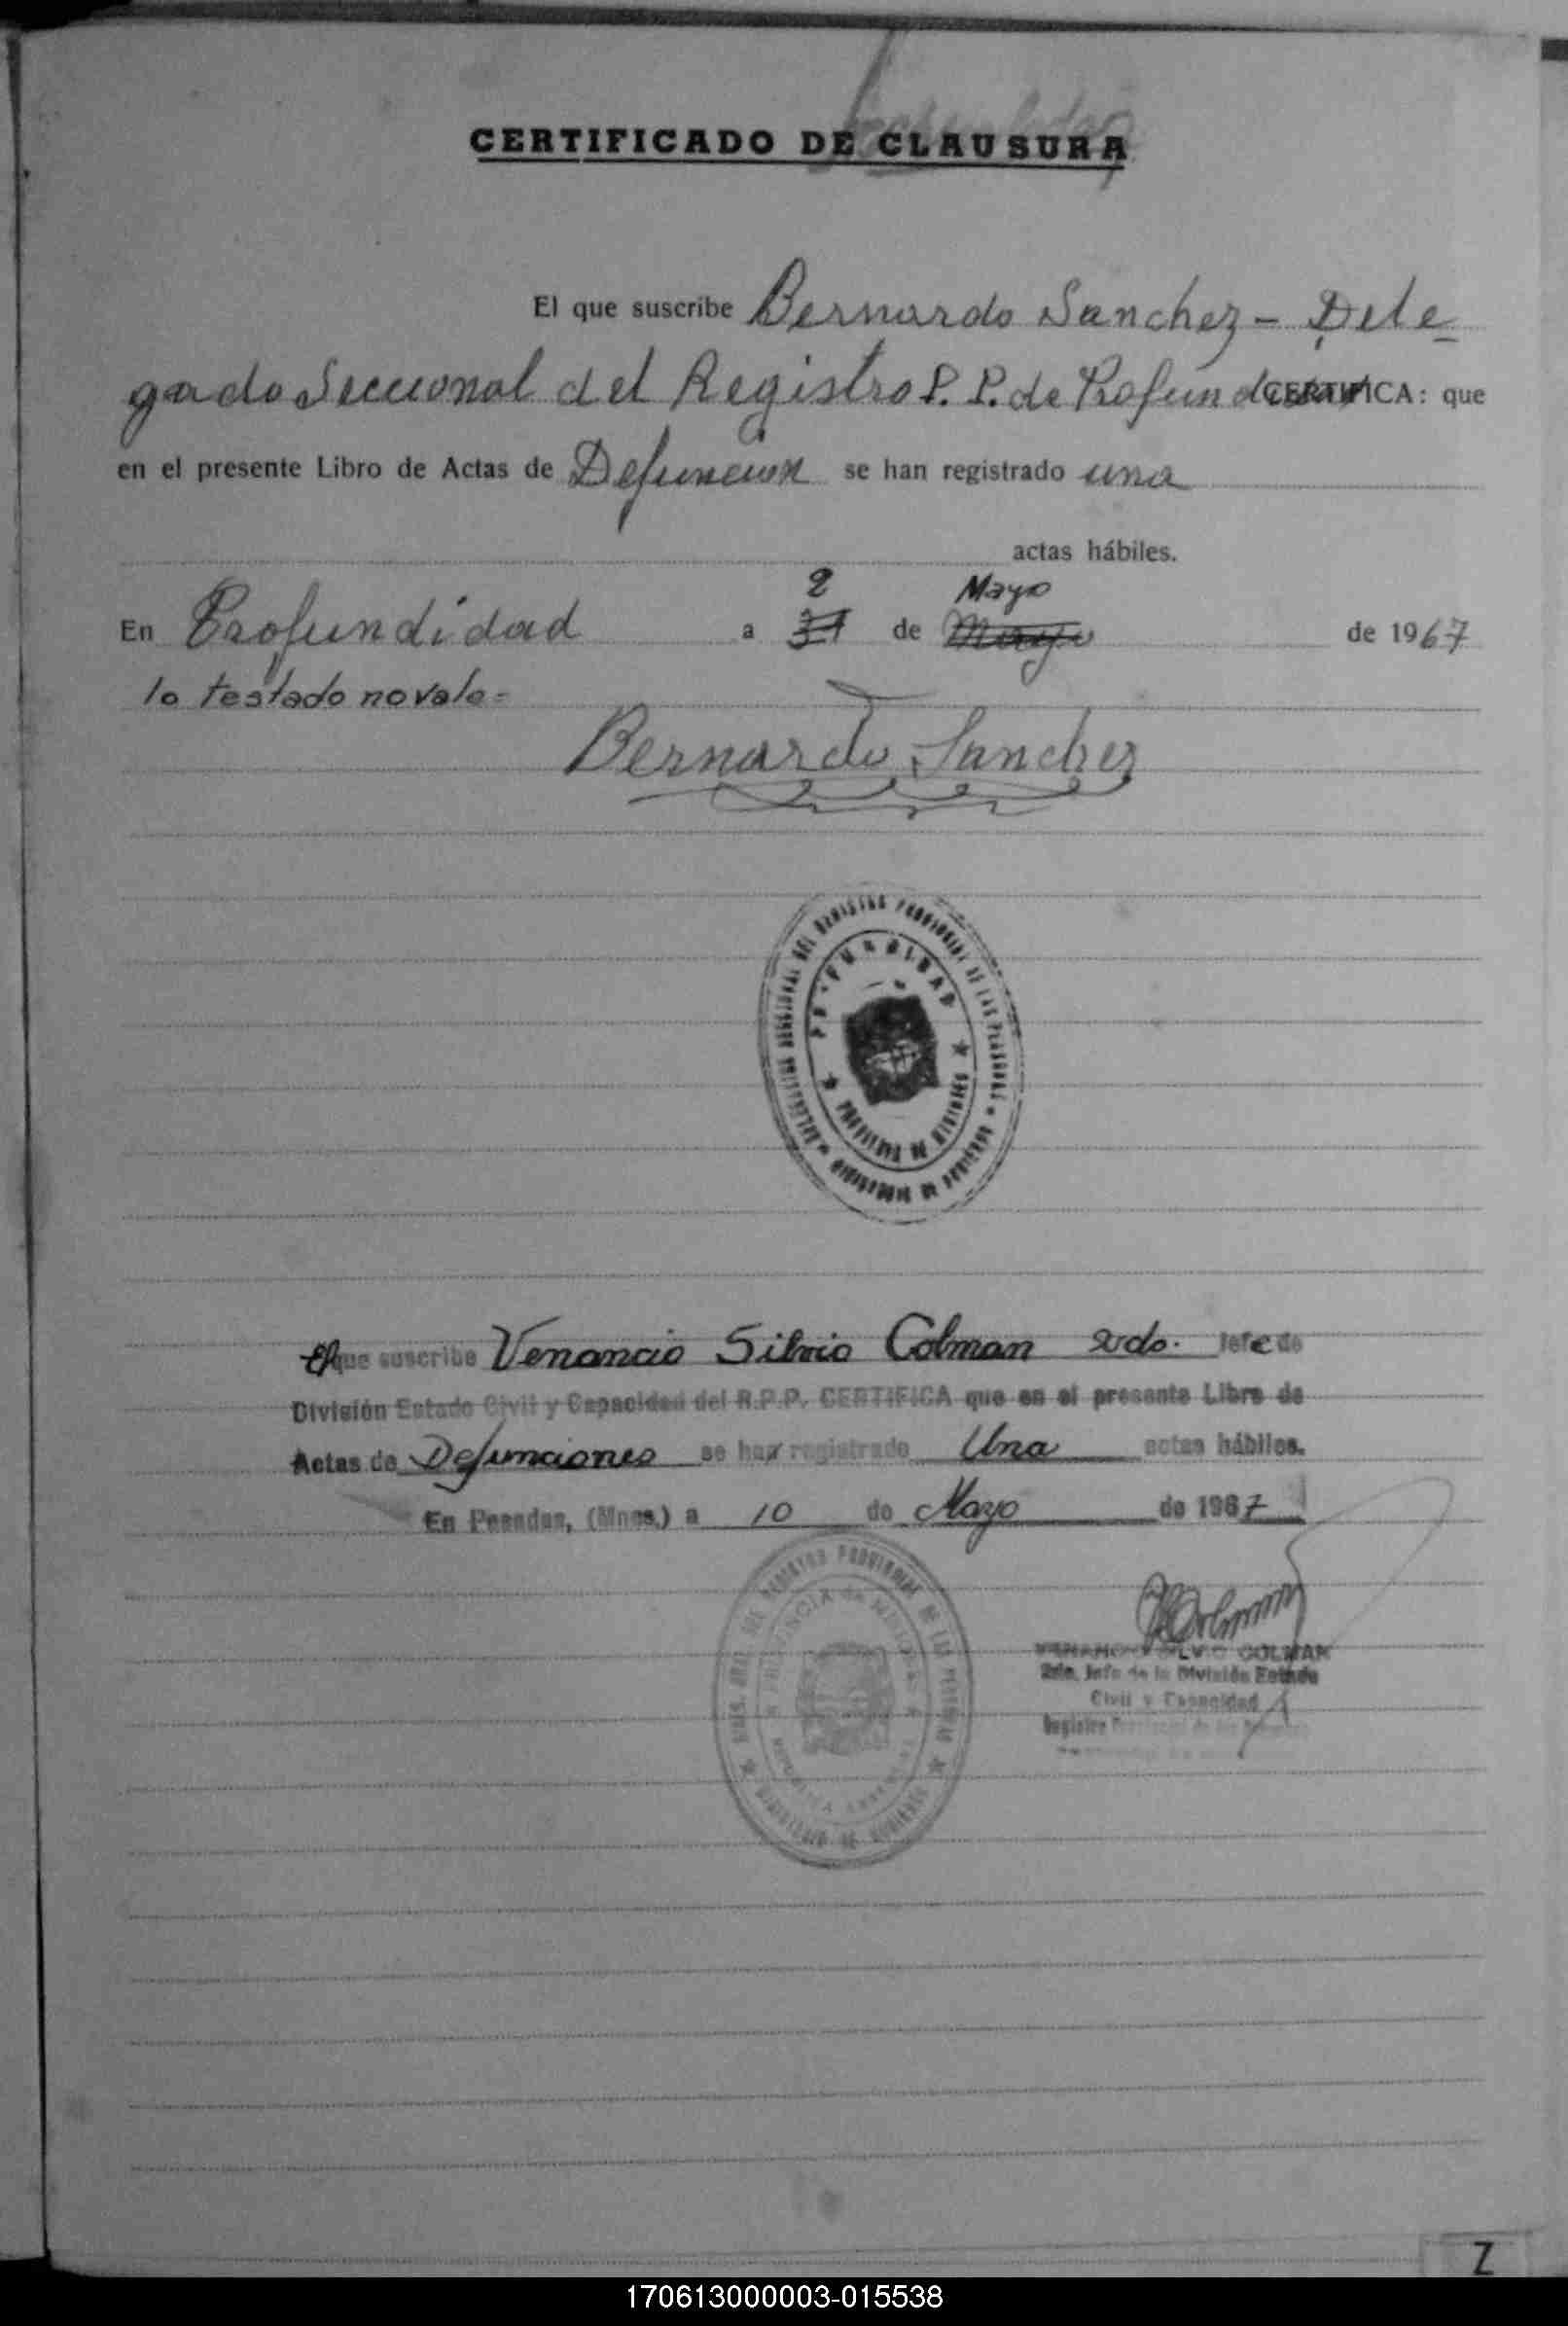 CERTIFICADO DE CLAUSURA
El que suscribe Bernardo Sanchez - Dele
gado Seccional del Registro P. P. de Profundidad CERTIFICA: que
en el presente Libro de Actas de Defuncion se han registrado una
actas hábiles.
2 Mayo
En Profundidad a 31 de Mayo de 1967
lo testado no vale -
Bernardo Sanchez
DELEGACION SECCIONAL DEL REGISTRO PROVINCIAL DE LAS PERSONAS
MINISTERIO DE GOBIERNO
PROFUNDIDAD
PROVINCIA DE MISIONES
El que suscribe Venancio Silvio Colman 2do. Jefe de
División Estado Civil y Capacidad del R.P.P. CERTIFICA que en el presente Libro de
Actas de Defunciones se han registrado Una actas hábiles.
En Posadas, (Mnes.) a 10 de Mayo de 1967
DEL REGISTRO PROVINCIAL DE LAS PERSONAS
MINISTERIO DE GOBIERNO
PROVINCIA DE MISIONES
REPUBLICA ARGENTINA
VColman
VENANCIO SILVIO COLMAN
2do. Jefe de la División Estado
Civil y Capacidad
Registro Provincial de las Personas
Z
170613000003-015538